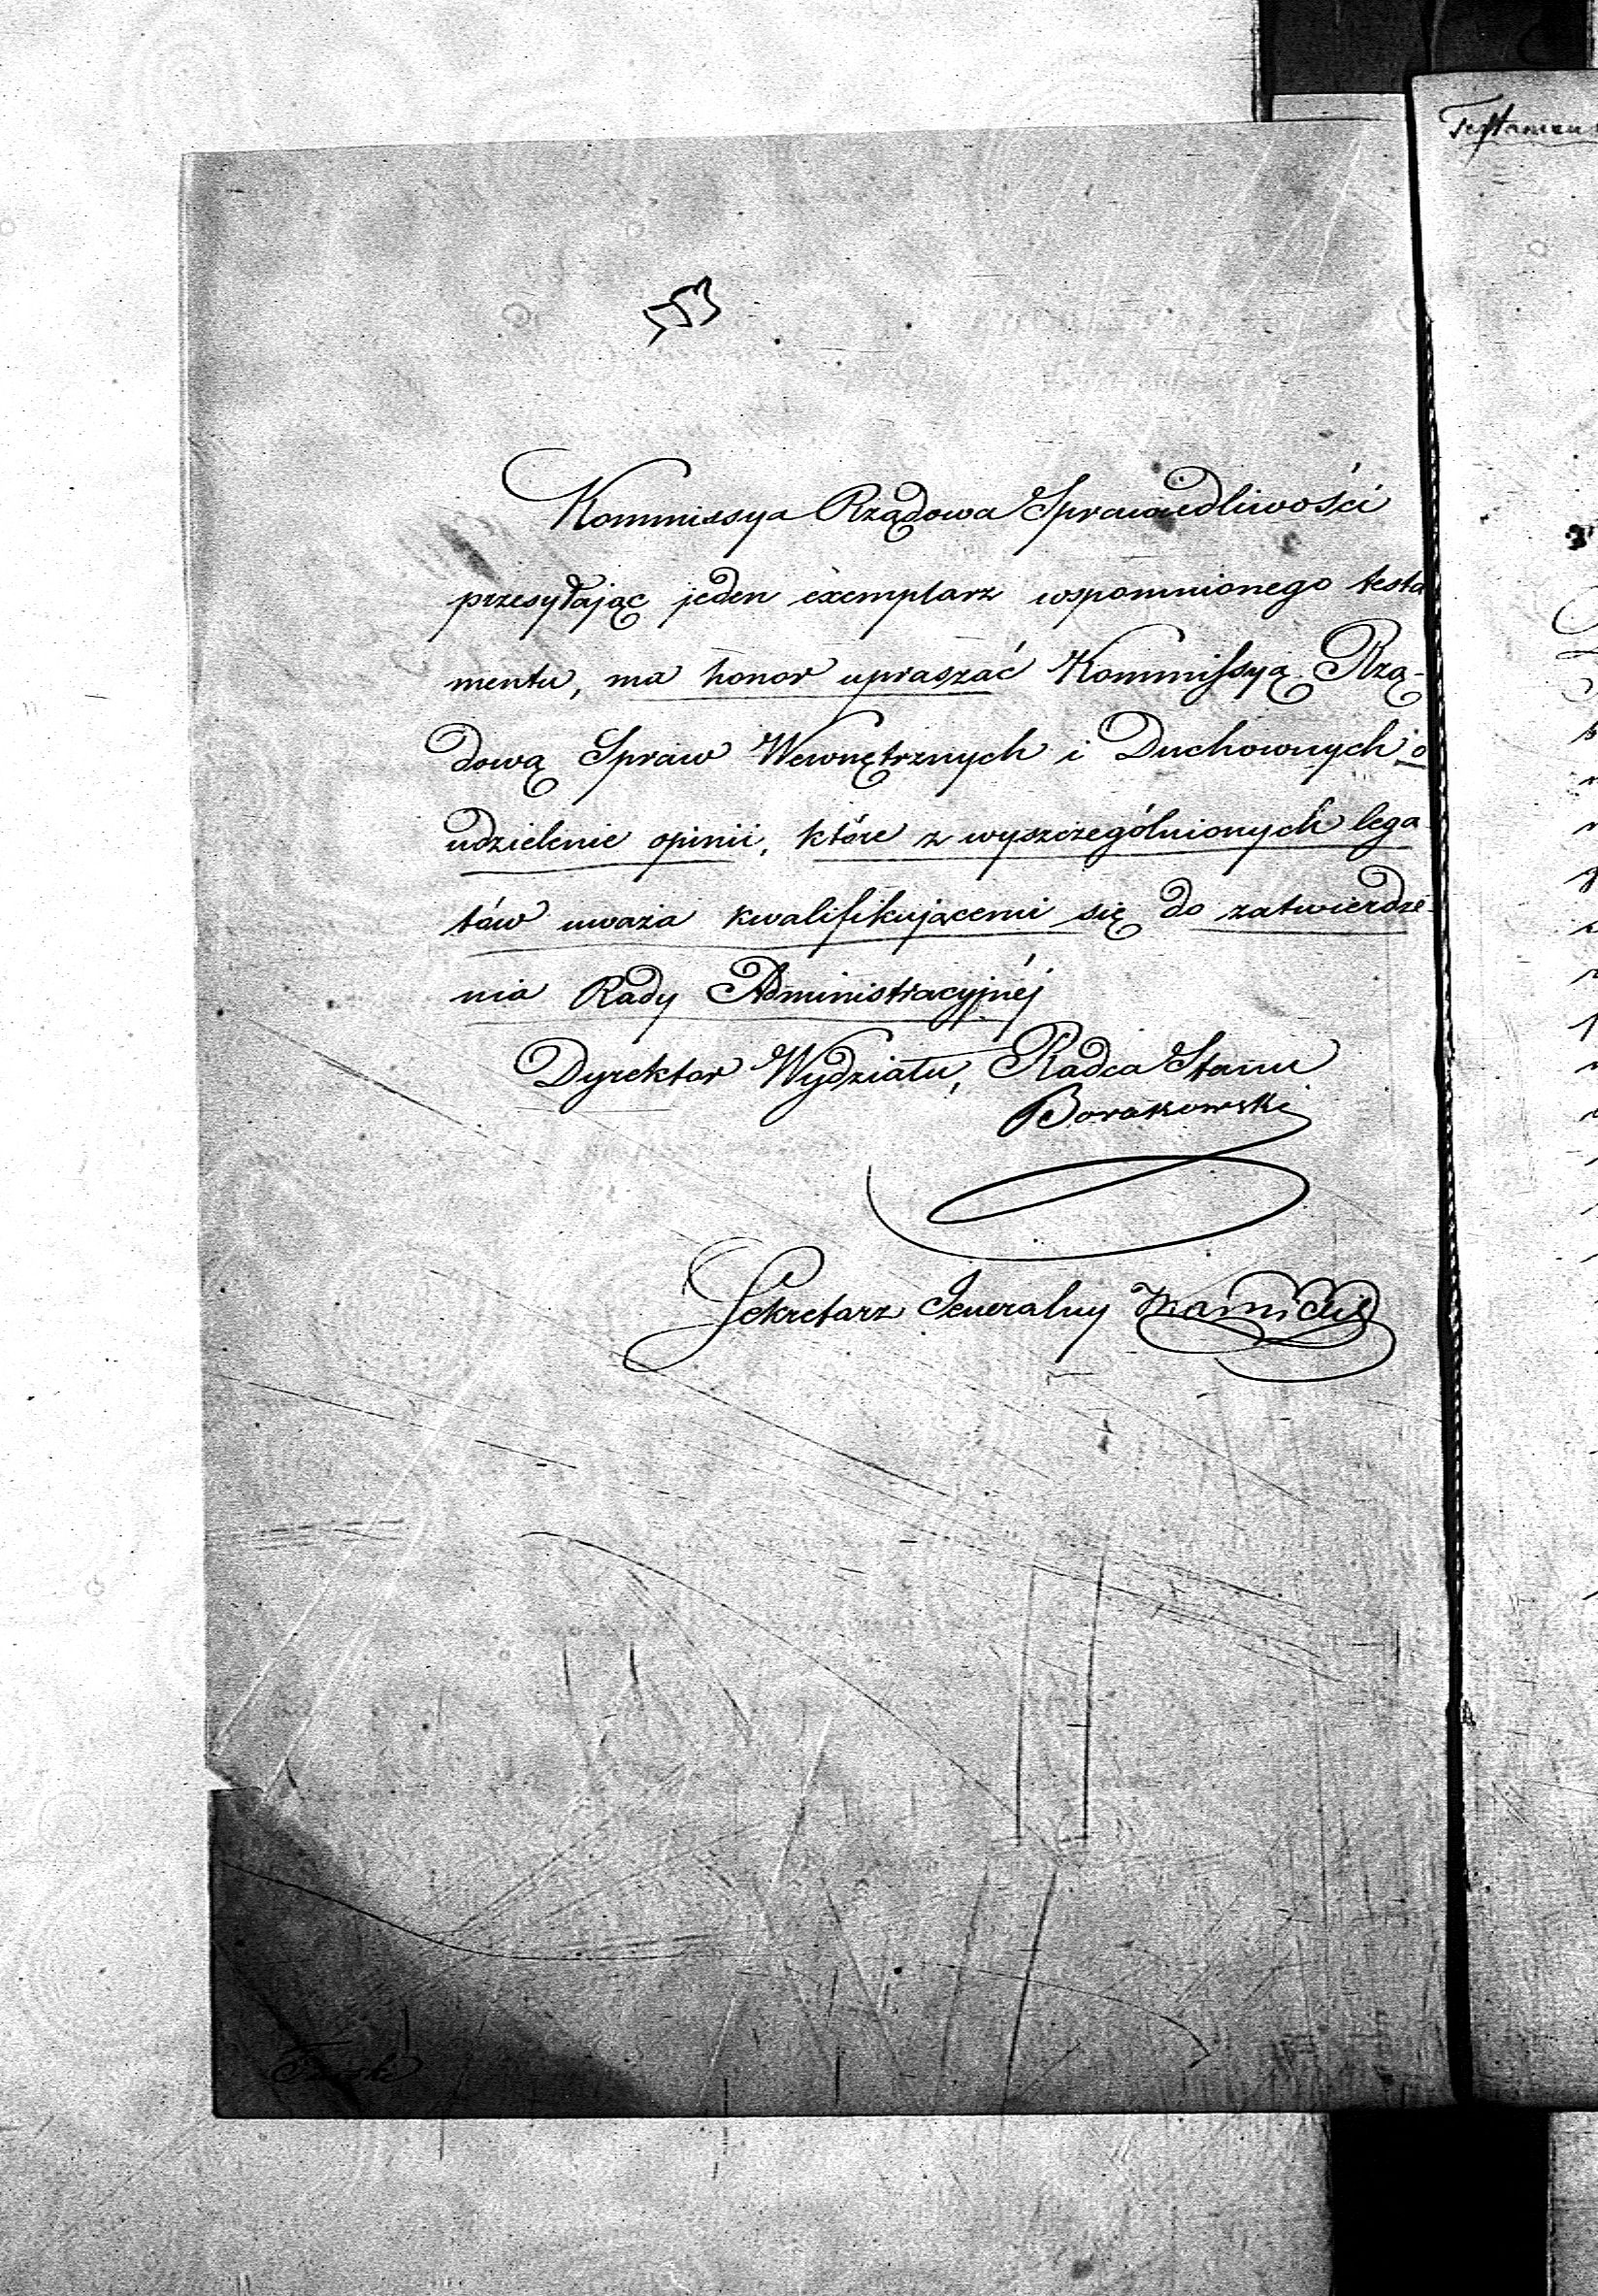 Kommissya Rządowa Sprawiedliwości
przesyłając jeden exemplarz wspomnionego testa
mentu, ma honor upraszać Kommissyą Rzą-
dową Spraw Wewnętrznych i Duchownych o
udzielenie opinii, które z wyszczególnionych lega
tów uważa kwalifikującemi się do zatwierdze-
nia Rady Administracyjnéj
Dyrektor Wydziału, Radca Stanu
Borakowski
Sekretarz Jeneralny
Testamen